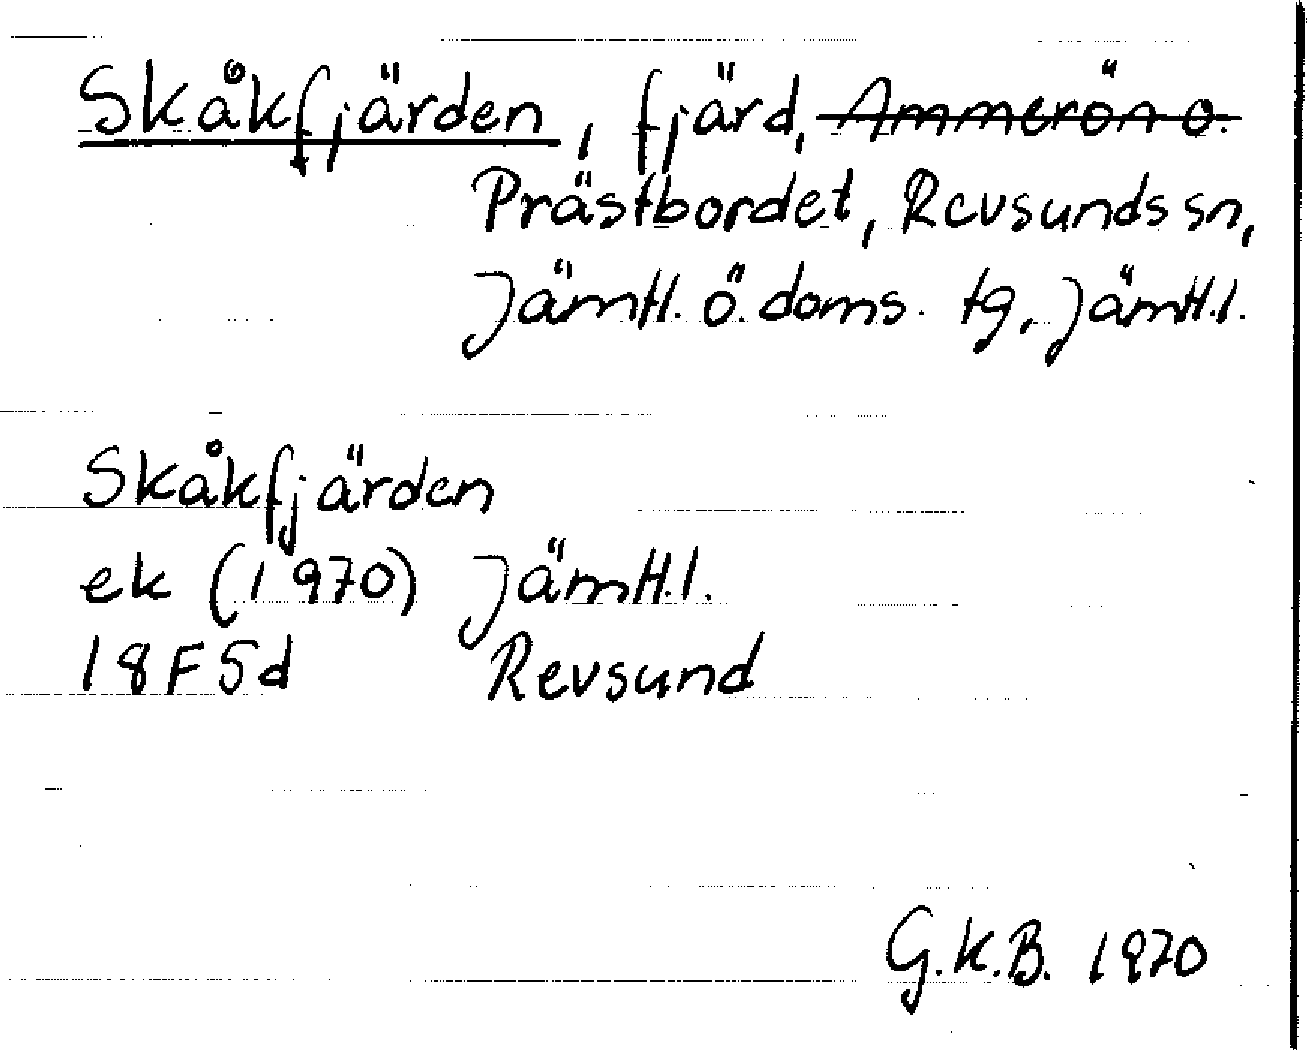 Skåkfjärden, fjärd, Ammerön o.
Prästbordet, Revsunds sn,
Jämtl. ö. doms. tg, Jämtl.l.
Skåkfjärden
ek (1970) Jämtl.l.
18F5d Revsund
G.K.B. 1970